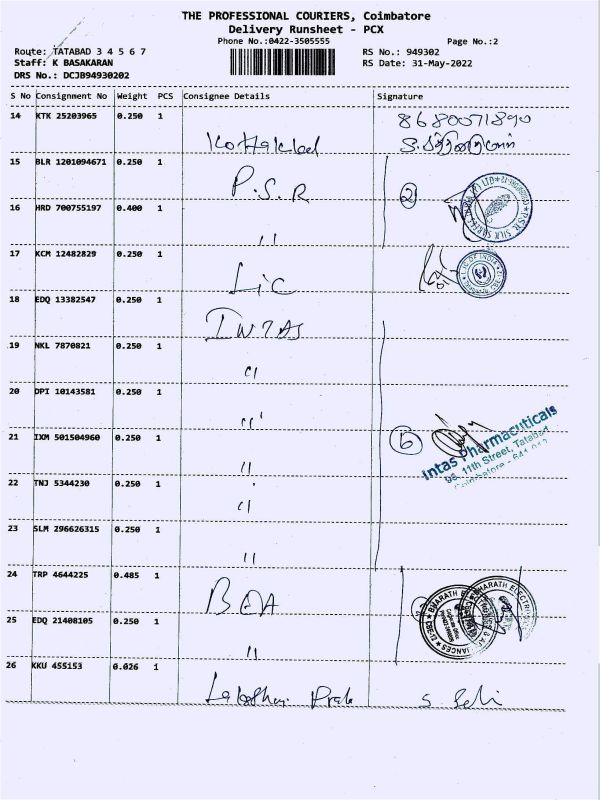 THE PROFESSIONAL COURIERS, Coimbatore
Delivery Runsheet - PCX
Phone No.:0422-3505555
Page No.:2
Route: TATABAD 3 4 5 6 7
RS No.: 949302
Staff: K BASAKARAN
RS Date: 31-May-2022
DRS No.: DCJB94930202
S No Consignment No Weight PCS Consignee Details Signature
14 KTK 25203965 0.250 1 Kottakkal 8680071890
15 BLR 1201094671 0.250 1 P.S.R
16 HRD 700755197 0.400 1 〃 2
17 KCM 12482829 0.250 1 LIC
18 EDQ 13382547 0.250 1 INTAS
19 NKL 7870821 0.250 1 〃
20 DPI 10143581 0.250 1 〃
21 IXM 501504960 0.250 1 〃 6
Intas Pharmaceuticals
11th Street, Tatabad
Coimbatore - 641 012
22 TNJ 5344230 0.250 1 〃
23 SLM 296626315 0.250 1 〃
24 TRP 4644225 0.485 1
BHARATH
25 EDQ 21408105 0.250 1 〃
26 KKU 455153 0.026 1